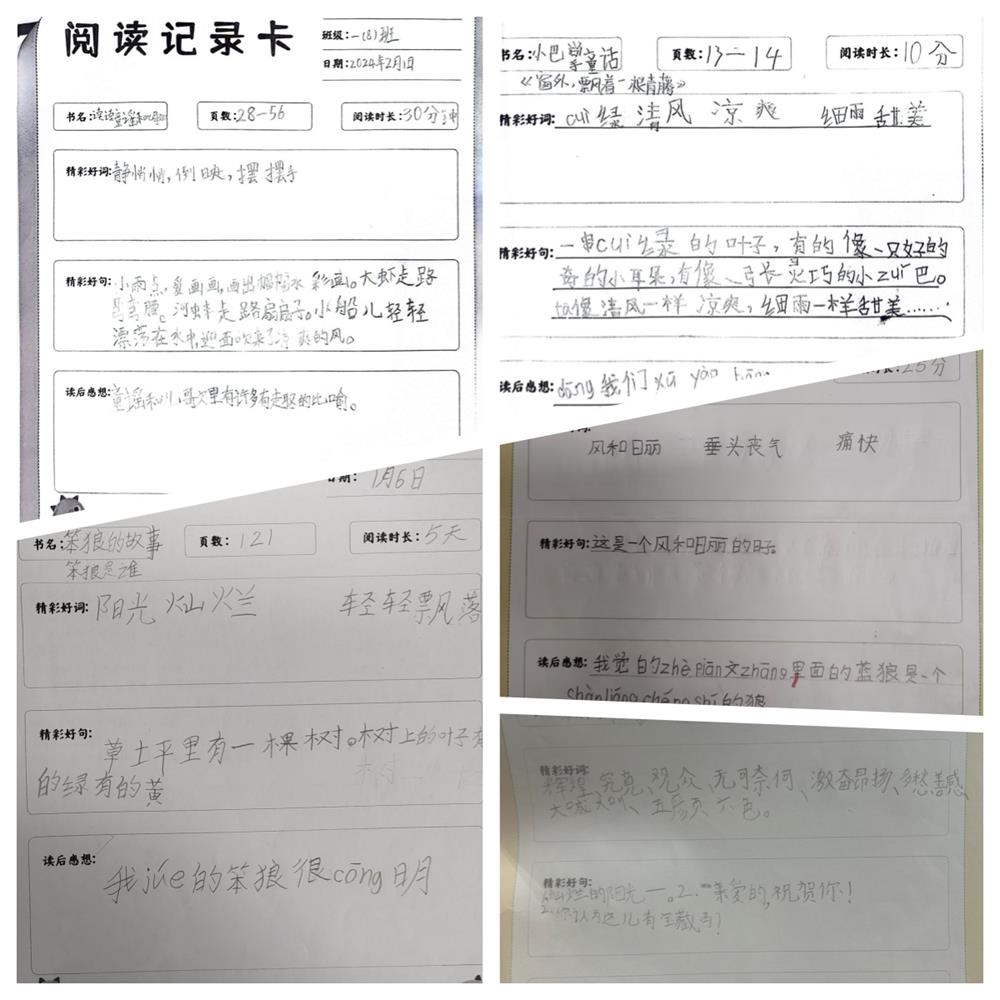 阅读记录卡
班级:一(8)班
日期:2024年2月1日
书名:读读童谣和儿歌
页数:28-56
阅读时长:30分钟
精彩好词:静悄悄,倒映,摆摆手
精彩好句:小雨点,爱画画,画出幅幅水彩画。大虾走路
弯腰。河蚌走路扇扇子。小船儿轻轻
漂荡在水中,迎面吹来了凉爽的风。
读后感想:童谣和儿歌里有许多有趣的比喻。
书名:小巴掌童话
页数:13—14
阅读时长:10分
《窗外,飘着一根青藤》
精彩好词:cuì绿 清风 凉爽 细雨 甜美
精彩好句:一串cuì绿的叶子,有的像一只好的
奇的小耳朵,有像一弓长灵巧的小zuǐ巴。
ta像清风一样凉爽,细雨一样甜美……
读后感想:
我们 xū yào
25分
风和日丽 垂头丧气 痛快
精彩好句:这是一个风和日丽的日子。
读后感想:我觉的zhè piān文zhāng里面的蓝狼是一个
chàn liáng chéng shí的狼
日期:1月6日
书名:笨狼的故事
页数:121
阅读时长:5天
笨狼是谁
精彩好词:阳光灿烂 轻轻飘落
精彩好句:草土平里有一棵树。树上的叶子有
的绿有的黄
读后感想:我júe的笨狼很cōng明
精彩好词:辉煌、究竟、观众、无可奈何、激奋昂扬、多愁善感
大喊大叫、五颜六色。
精彩好句:灿烂的阳光一。2.“亲爱的,祝贺你!
你认为这儿有宝藏吗?